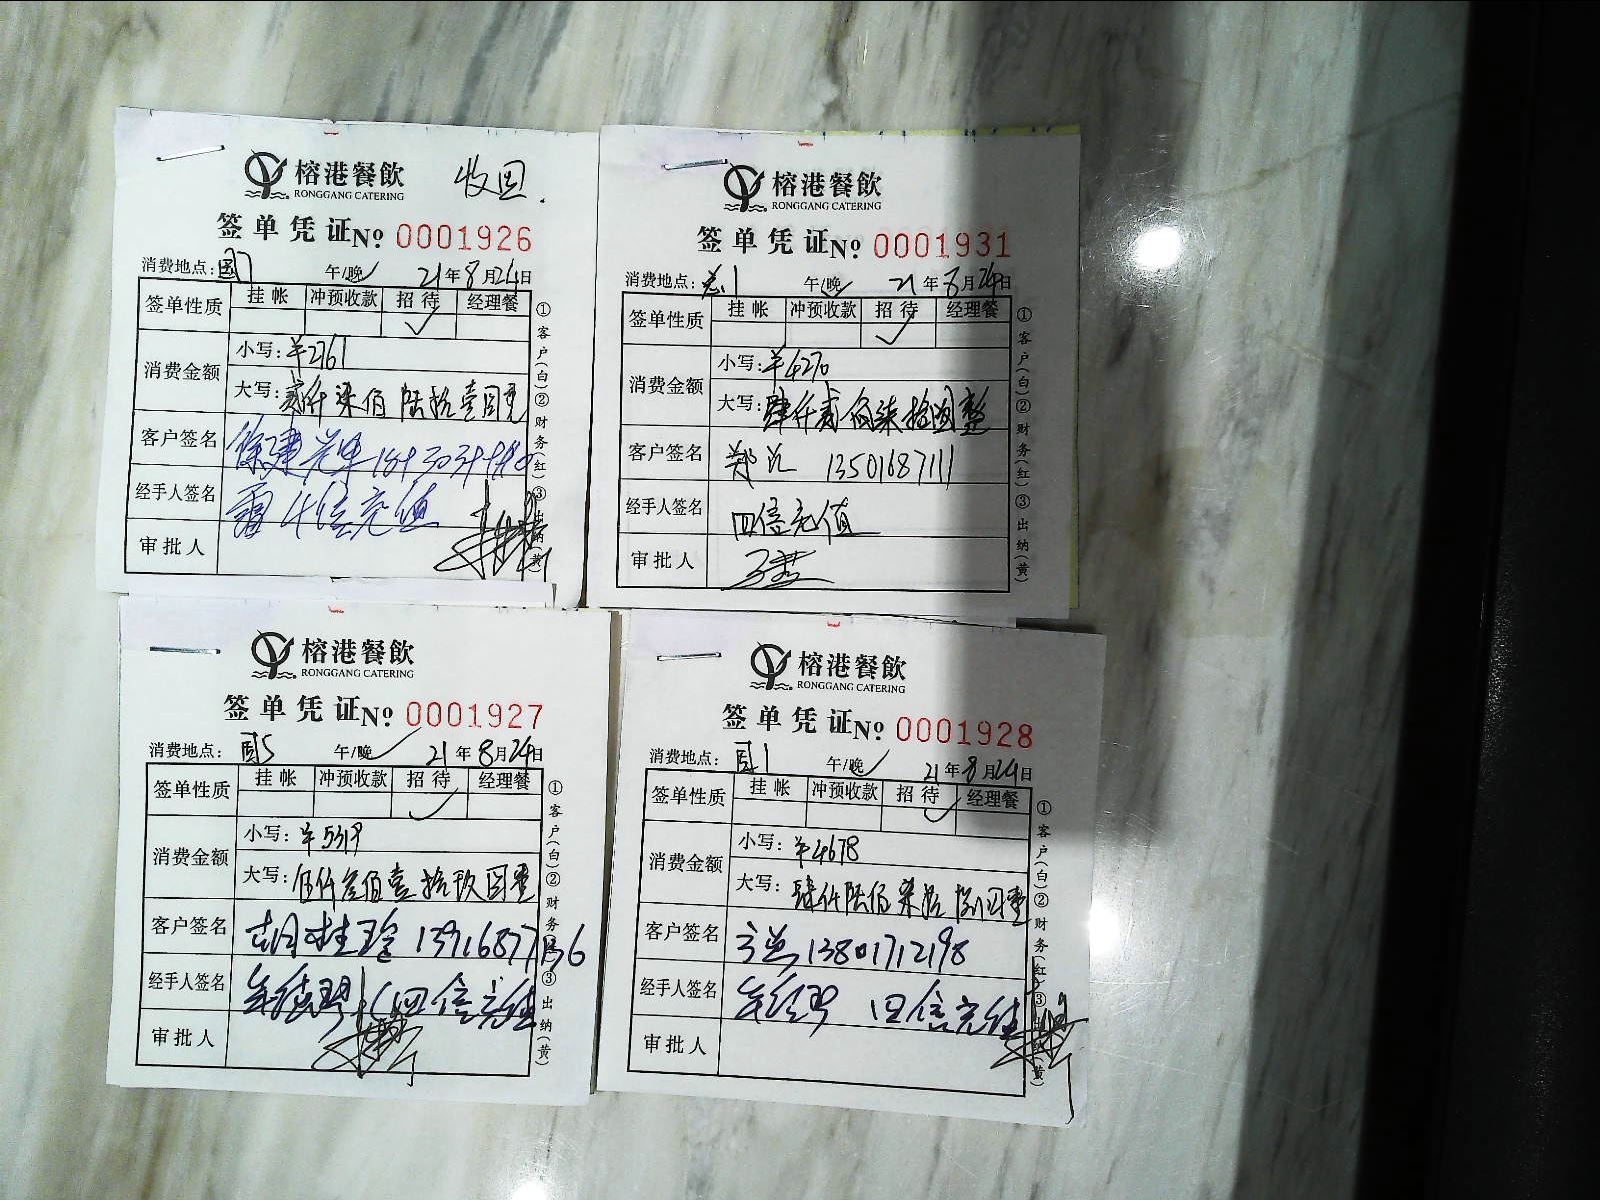 榕港餐飲
RONGGANG CATERING
收回.
签单凭证 № 0001926
消费地点: 国7 午/晚✓ 21年8月24日
签单性质 挂帐 冲预收款 招待 经理餐
✓
消费金额 小写: ¥2761
大写: 贰仟柒佰陆拾壹圆整
客户签名
经手人签名 4倍充值
审批人
①客户(白)②财务(红)③出纳(黄)
榕港餐飲
RONGGANG CATERING
签单凭证 № 0001931
消费地点: 总1 午/晚✓ 21年8月24日
签单性质 挂帐 冲预收款 招待 经理餐
✓
消费金额 小写: ¥4270
大写: 肆仟贰佰柒拾圆整
客户签名 郑 13501687111
经手人签名 四倍充值
审批人
①客户(白)②财务(红)③出纳(黄)
榕港餐飲
RONGGANG CATERING
签单凭证 № 0001927
消费地点: 国5 午/晚✓ 21年8月24日
签单性质 挂帐 冲预收款 招待 经理餐
✓
消费金额 小写: ¥5319
大写: 伍仟叁佰壹拾玖圆整
客户签名 胡桂玲
经手人签名 (四倍充值
审批人
①客户(白)②财务(红)③出纳(黄)
榕港餐飲
RONGGANG CATERING
签单凭证 № 0001928
消费地点: 国1 午/晚✓ 21年8月24日
签单性质 挂帐 冲预收款 招待 经理餐
✓
消费金额 小写: ¥4678
大写: 肆仟陆佰柒拾捌圆整
客户签名 方总 13801712198
经手人签名 四倍充值
审批人
①客户(白)②财务(红)③出纳(黄)